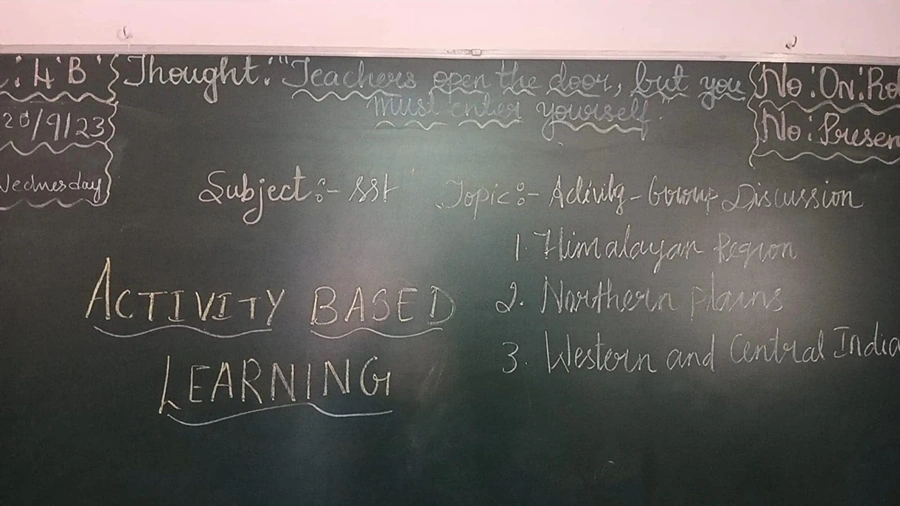 : 4 'B'
Thought: "Teachers open the door, but you
must enter yourself."
No: On: Rol
No: Presen
20/9/23
Wednesday
Subject:- SST
Topic:- Activity - Group Discussion
1. Himalayan Region
2. Northern plains
3. Western and Central India
ACTIVITY BASED
LEARNING